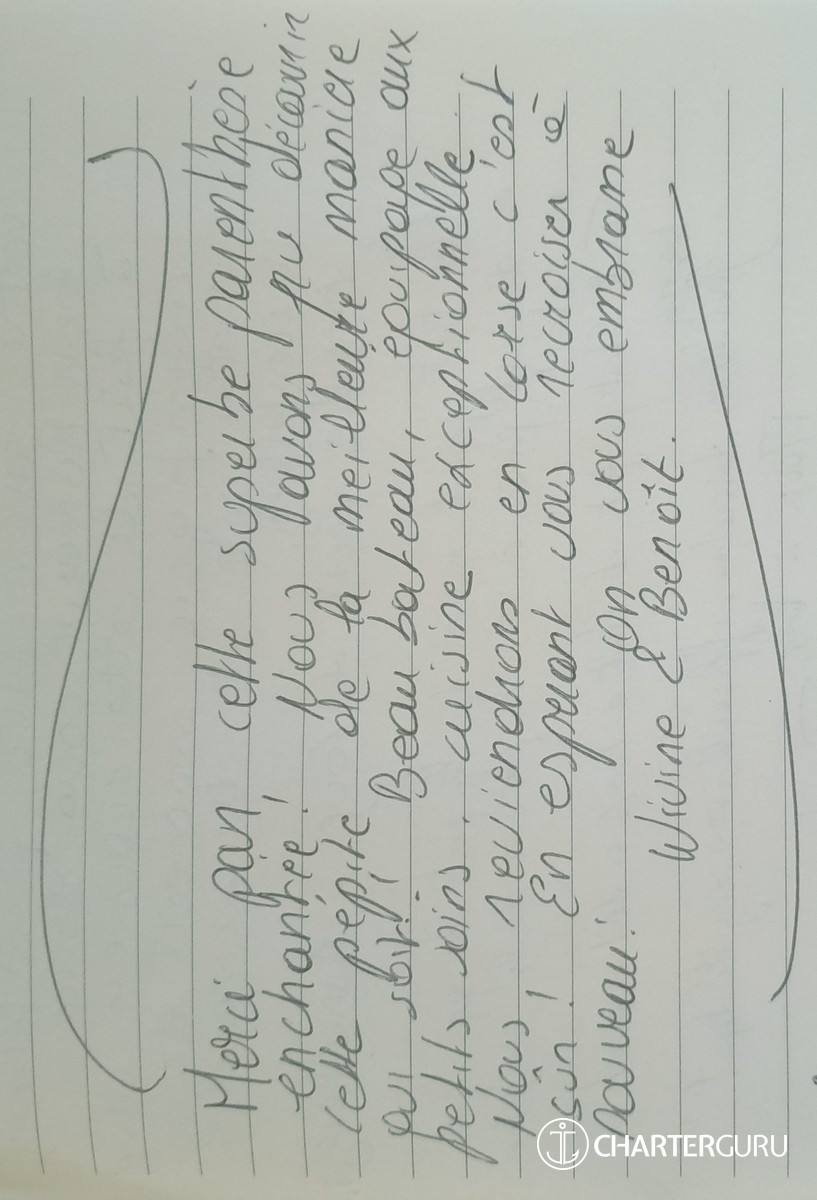 Merci pour cette superbe parenthèse
enchantée! Nous avons pu découvrir
cette pépite de la meilleure manière
qui soit! Beau bateau, équipage aux
petits soins, cuisine exceptionnelle.
Nous reviendrons en Corse c'est
sûr! En espérant vous recroiser à
nouveau! On vous embrasse
Wivine & Benoît.
CHARTERGURU